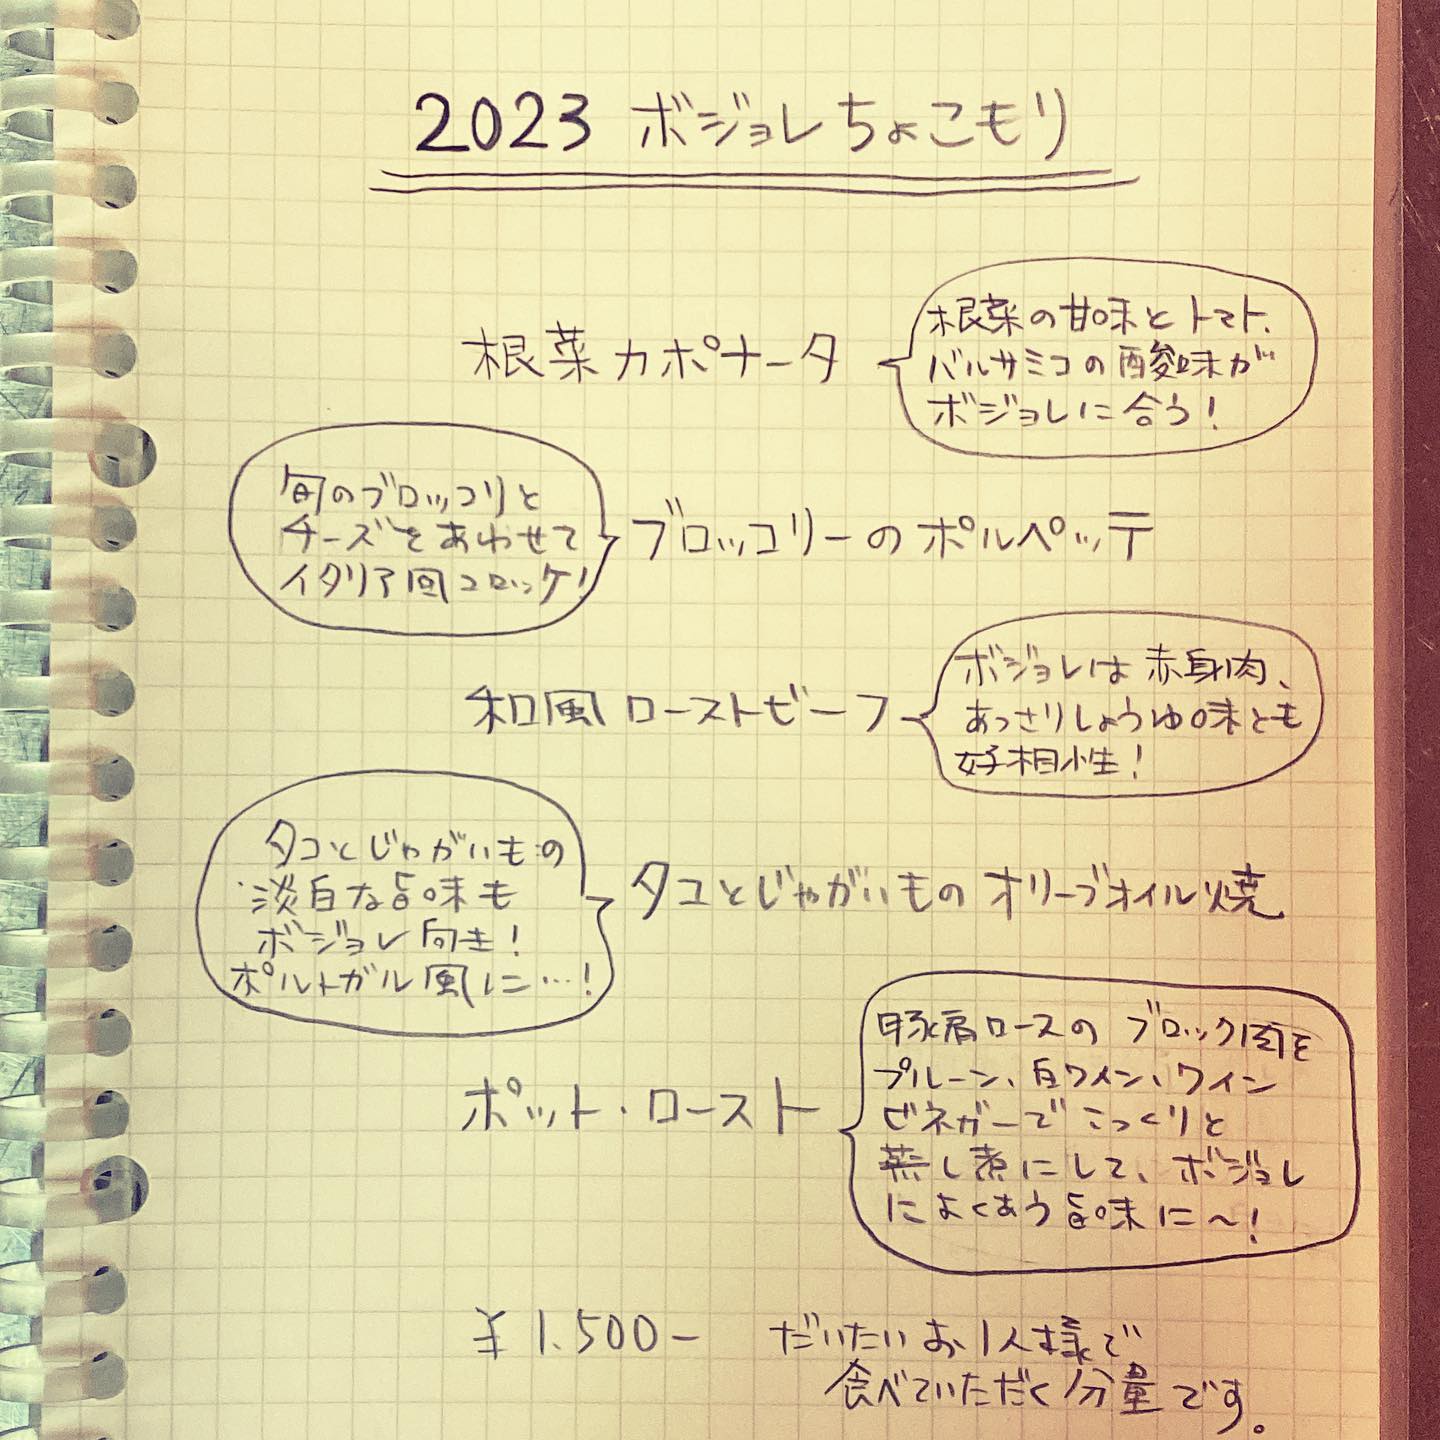 2023 ボジョレちょこもり
根菜カポナータ
根菜の甘味とトマト、
バルサミコの酸味が
ボジョレに合う!
旬のブロッコリと
チーズをあわせて
イタリア風コロッケ!
ブロッコリーのポルペッテ
和風ローストビーフ
ボジョレは赤身肉、
あっさりしょうゆ味とも
好相性!
タコとじゃがいもの
淡白な旨味も
ボジョレ向き!
ポルトガル風に…!
タコとじゃがいものオリーブオイル焼
ポット・ロースト
豚肩ロースのブロック肉を
プルーン、白ワイン、ワイン
ビネガーでこっくりと
蒸し煮にして、ボジョレ
によくあう旨味に〜!
¥1.500− だいたいお1人様で
食べていただく分量です。